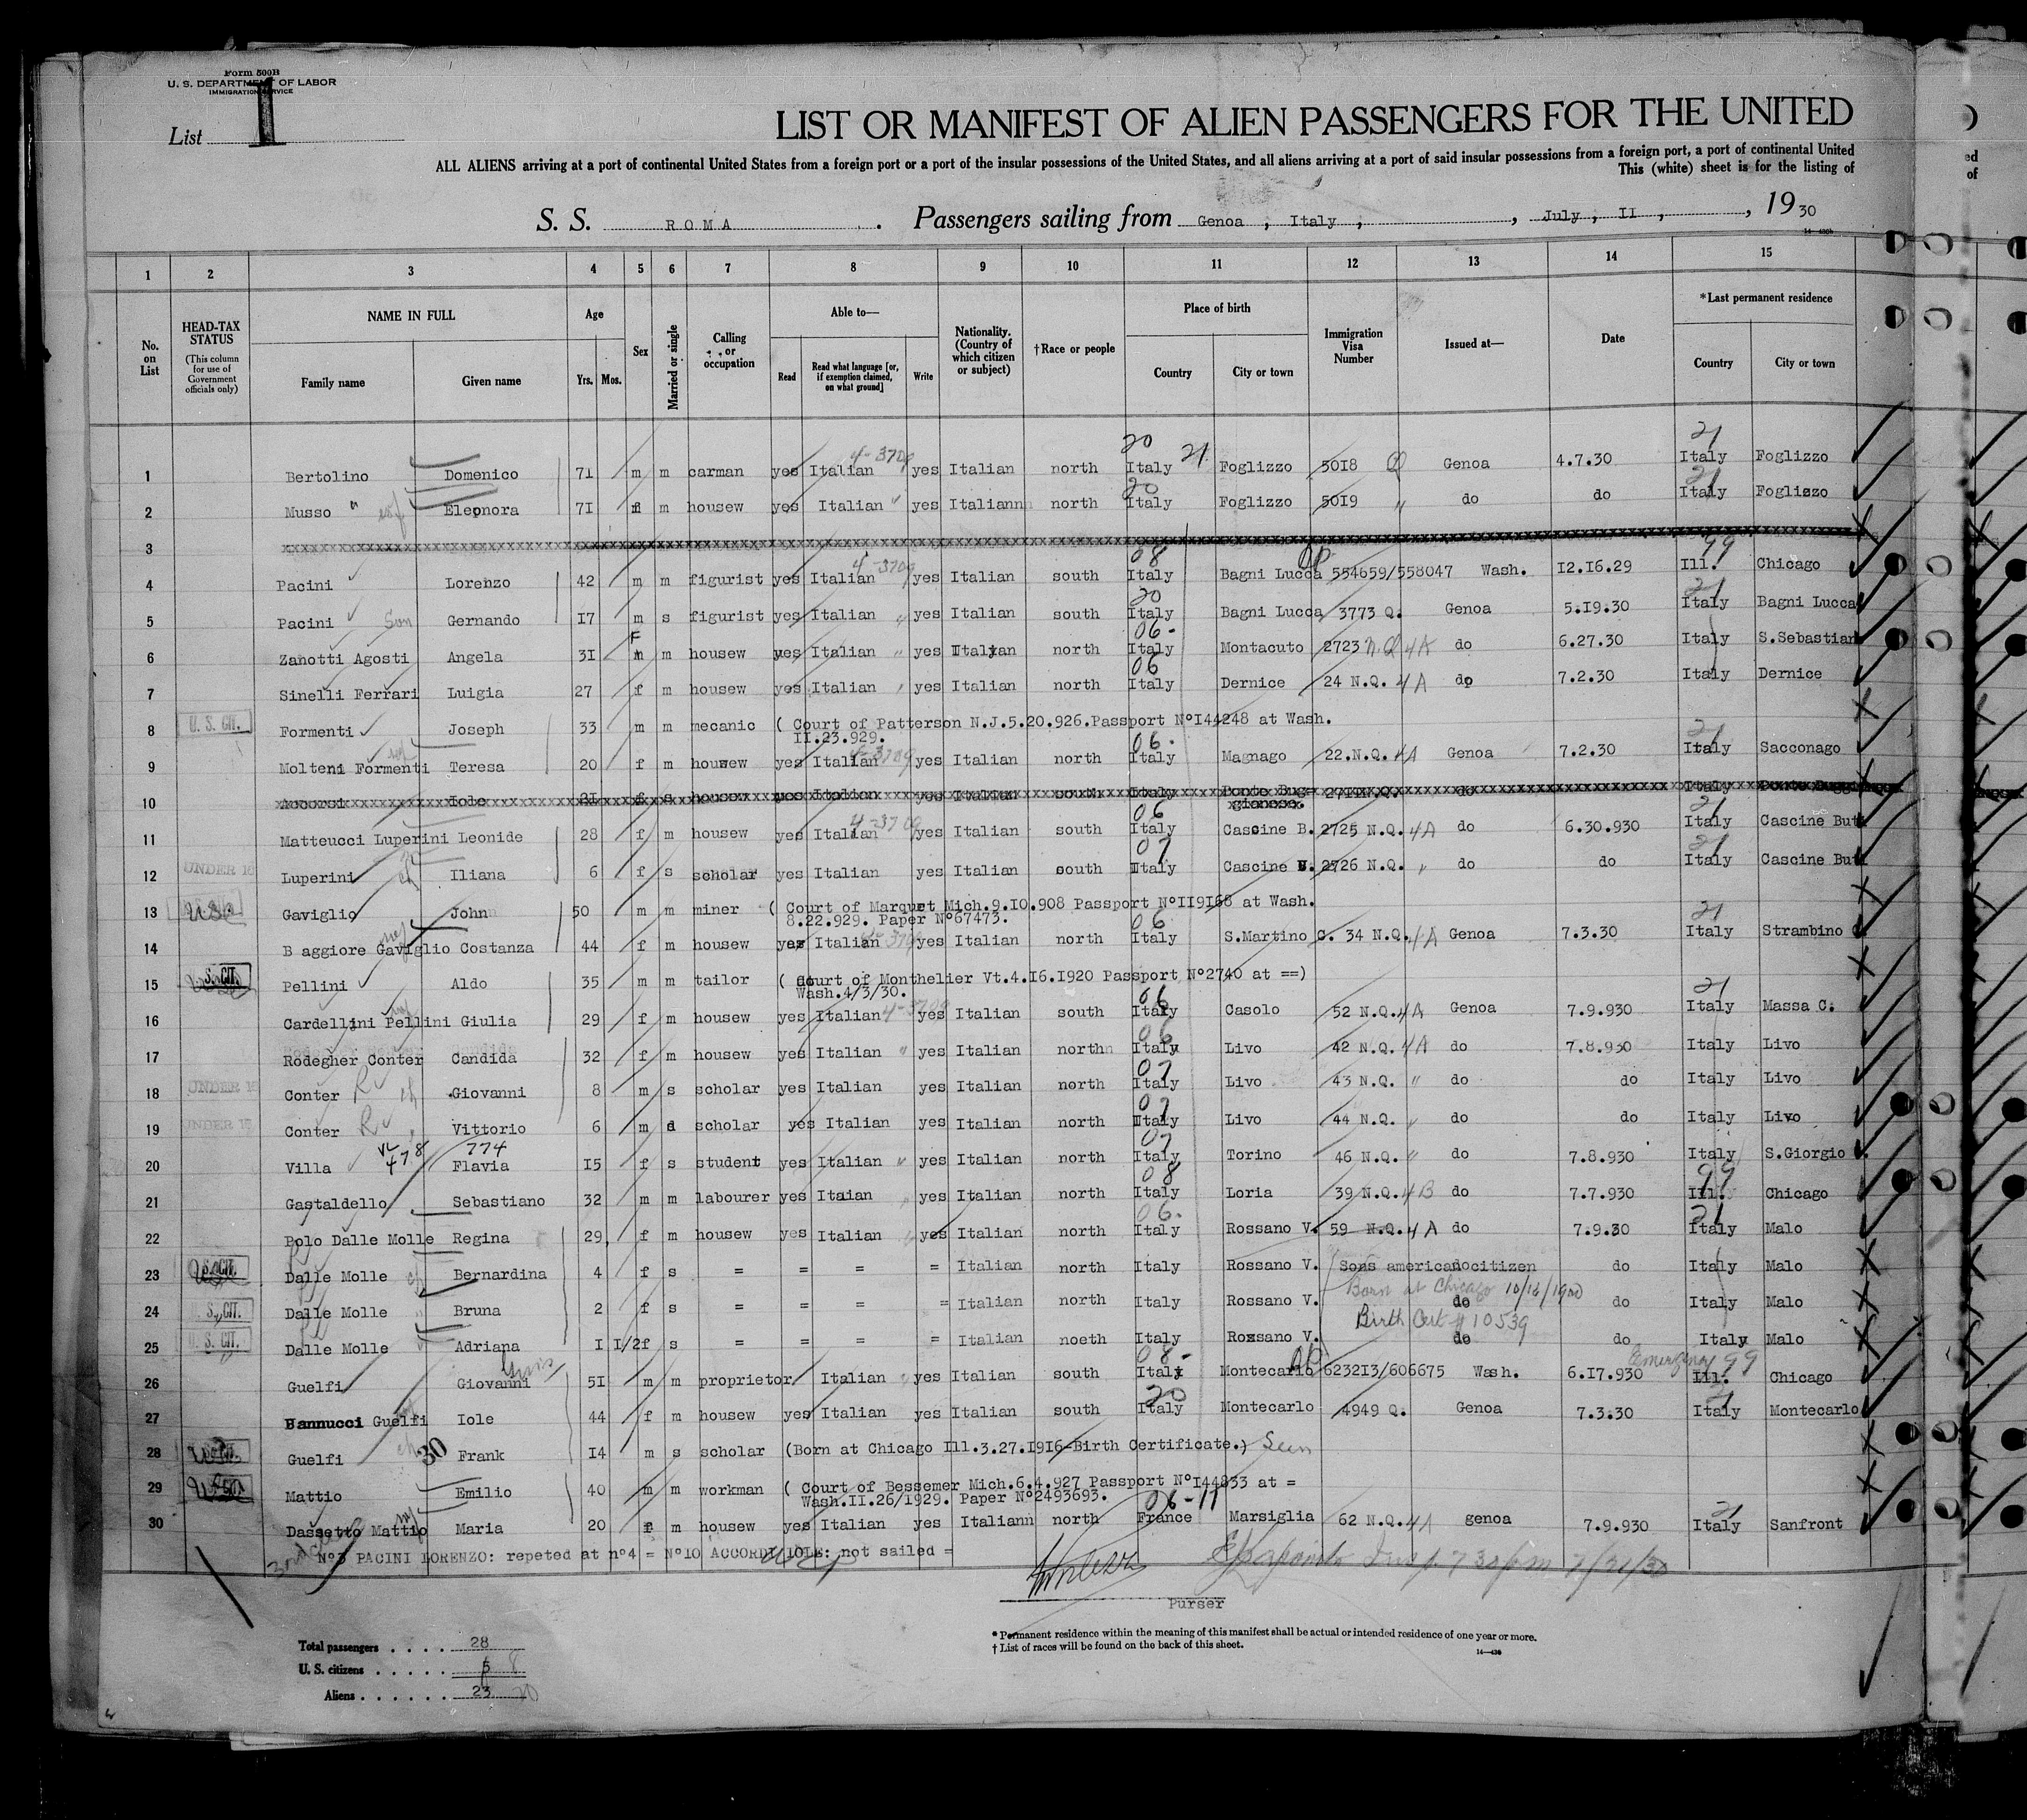 Form 500B
U. S. DEPARTMENT OF LABOR
IMMIGRATION SERVICE
List 1
LIST OR MANIFEST OF ALIEN PASSENGERS FOR THE UNITED
ALL ALIENS arriving at a port of continental United States from a foreign port or a port of the insular possessions of the United States, and all aliens arriving at a port of said insular possessions from a foreign port, a port of continental United
This (white) sheet is for the listing of
S. S. ROMA. Passengers sailing from Genoa, Italy, July, II, 1930
1 2 3 4 5 6 7 8 9 10 11 12 13 14 15
No. on List
HEAD-TAX STATUS (This column for use of Government officials only)
NAME IN FULL Family name Given name
Age Yrs. Mos.
Sex
Married or single
Calling or occupation
Able to— Read Read what language [or, if exemption claimed, on what ground] Write
Nationality. (Country of which citizen or subject)
†Race or people
Place of birth Country City or town
Immigration Visa Number
Issued at—
Date
*Last permanent residence Country City or town
20 21 4-3709 21
1 Bertolino Domenico 71 m m carman yes Italian yes Italian north Italy Foglizzo 50I8 Q Genoa 4.7.30 Italy Foglizzo
20 21
2 Musso " Eleonora 7I f m housew yes Italian " yes Italiann north Italy Foglizzo 50I9 " do do Italy Foglizzo
3 xxxxxxxxxxxxxxxxxxxxxxxx
08 4-3709 99
4 Pacini Lorenzo 42 m m figurist yes Italian yes Italian south Italy Bagni Lucca 554659/558047 Wash. I2.I6.29 Ill. Chicago
20 21
5 Pacini Son Gernando I7 m s figurist yes Italian " yes Italian south Italy Bagni Lucca 3773 Q. Genoa 5.I9.30 Italy Bagni Lucca
06
6 Zanotti Agosti Angela 3I F m housew yes Italian " yes Italian north Italy Montacuto 2723 N.Q 4A do 6.27.30 Italy S.Sebastian
06
7 Sinelli Ferrari Luigia 27 f m housew yes Italian yes Italian north Italy Dernice 24 N.Q. 4A do 7.2.30 Italy Dernice
8 U. S. CIT. Formenti Joseph 33 m m mecanic ( Court of Patterson N.J.5.20.926.Passport N°I44248 at Wash.
II.23.929.
06 4-3709 21
9 Molteni Formenti Teresa 20 f m housew yes Italian yes Italian north Italy Magnago 22.N.Q. 4A Genoa 7.2.30 Italy Sacconago
10 Accorsi Iole 2I f s housew yes Italian yes Italian south Italy Ponte Bug=
gianese.
06 4-3709 21
11 Matteucci Luperini Leonide 28 f m housew yes Italian yes Italian south Italy Cascine B. 2725 N.Q. 4A do 6.30.930 Italy Cascine But
07 21
12 UNDER 16 Luperini ch Iliana 6 f s scholar yes Italian yes Italian south Italy Cascine B. 2726 N.Q. " do do Italy Cascine But
13 USC Gaviglio John 50 m m miner ( Court of Marquet Mich.9.I0.908 Passport N°II9I68 at Wash.
8.22.929. Paper N°67473.
06 21
14 B aggiore Gaviglio Costanza 44 f m housew yes Italian yes Italian north Italy S.Martino C. 34 N.Q. 4A Genoa 7.3.30 Italy Strambino
15 S. CIT. Pellini Aldo 35 m m tailor ( Court of Monthelier Vt.4.I6.I920 Passport N°2740 at ==)
Wash.4/3/30.
06 4-3709 21
16 Cardellini Pellini Giulia 29 f m housew yes Italian yes Italian south Italy Casolo 52 N.Q. 4A Genoa 7.9.930 Italy Massa C.
06
17 Rodegher Conter Candida 32 f m housew yes Italian " yes Italian north Italy Livo 42 N.Q. 4A do 7.8.930 Italy Livo
07
18 UNDER 16 Conter R ch Giovanni 8 m s scholar yes Italian yes Italian north Italy Livo 43 N.Q. " do do Italy Livo
07
19 UNDER 16 Conter R Vittorio 6 m d scholar yes Italian yes Italian north Italy Livo 44 N.Q. " do do Italy Livo
478 774 07
20 Villa Flavia I5 f s student yes Italian " yes Italian north Italy Torino 46 N.Q. " do 7.8.930 Italy S.Giorgio
08 99
21 Gastaldello Sebastiano 32 m m labourer yes Itaian yes Italian north Italy Loria 39 N.Q. 4B do 7.7.930 Ill. Chicago
06. 21
22 Polo Dalle Molle Regina 29 f m housew yes Italian yes Italian north Italy Rossano V. 59 N.Q. 4A do 7.9.30 Italy Malo
23 S. CIT. Dalle Molle ch Bernardina 4 f s = = = = Italian north Italy Rossano V. Sons american citizen do Italy Malo
Born at Chicago 10/16/1920
24 S. CIT. Dalle Molle Bruna 2 f s = = = = Italian north Italy Rossano V. do do Italy Malo
Birth Cert # 10539
25 U. S. CIT. Dalle Molle Adriana I I/2 f s = = = = Italian noeth Italy Rossano V. do do Italy Malo
08 Emergency 99
26 Guelfi Giovanni 5I m m proprietor Italian yes Italian south Italy Montecarlo 6232I3/606675 Wash. 6.I7.930 Ill. Chicago
20 21
27 Bannucci Guelfi Iole 44 f m housew yes Italian yes Italian south Italy Montecarlo 4949 Q. Genoa 7.3.30 Italy Montecarlo
28 Guelfi ch 30 Frank I4 m s scholar (Born at Chicago Ill.3.27.I9I6-Birth Certificate.) Seen
29 Mattio Emilio 40 m m workman ( Court of Bessemer Mich.6.4.927 Passport N°I44833 at =
Wash.II.26/1929. Paper N°2493693.
06-11 21
30 Dassetto Mattio Maria 20 f m housew yes Italian yes Italiann north France Marsiglia 62 N.Q. 4A genoa 7.9.930 Italy Sanfront
N°3 PACINI LORENZO: repeted at n°4 = N°IO ACCORDI IOLE: not sailed =
7 30 pm 7/21/30
Purser
Total passengers . . . . 28
U. S. citizens . . . . . 5 8
Aliens . . . . . . 23 20
* Permanent residence within the meaning of this manifest shall be actual or intended residence of one year or more.
† List of races will be found on the back of this sheet.
14—430
ed
of